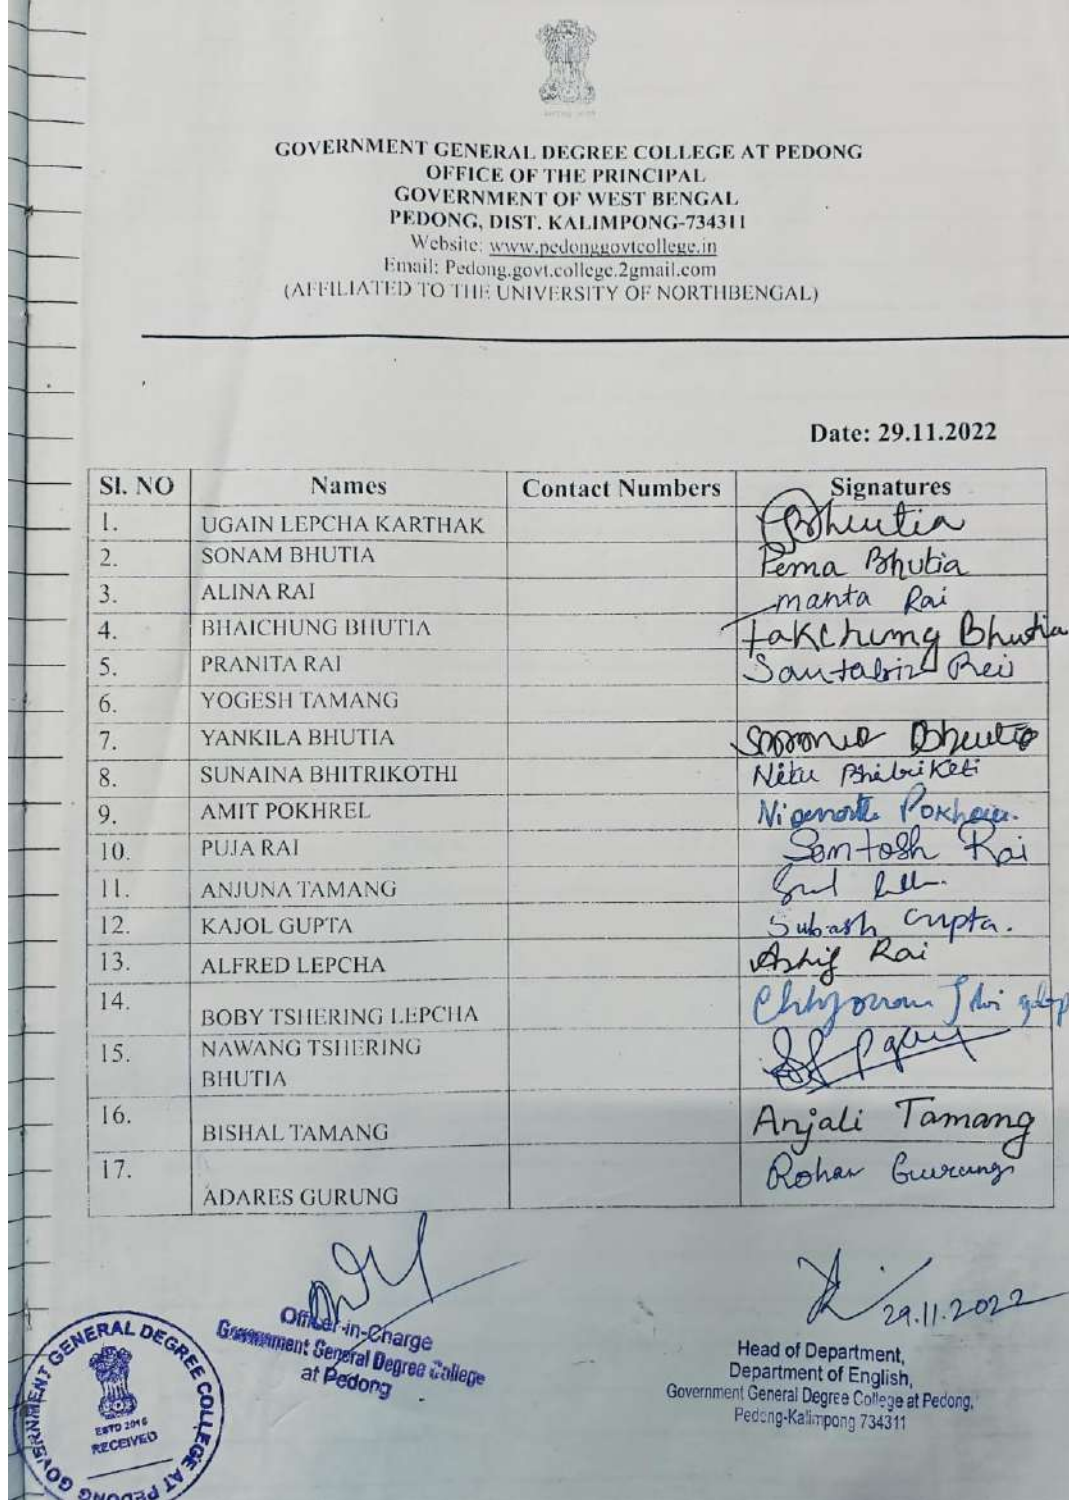 GOVERNMENT GENERAL DEGREE COLLEGE AT PEDONG
OFFICE OF THE PRINCIPAL
GOVERNMENT OF WEST BENGAL
PEDONG, DIST. KALIMPONG-734311
Website: www.pedonggovtcollege.in
Email: Pedong.govt.college.2gmail.com
(AFFILIATED TO THE UNIVERSITY OF NORTHBENGAL)
Date: 29.11.2022
Sl. NO Names Contact Numbers Signatures
1. UGAIN LEPCHA KARTHAK Bhutia
2. SONAM BHUTIA Pema Bhutia
3. ALINA RAI manta Rai
4. BHAICHUNG BHUTIA Bhutia
5. PRANITA RAI
6. YOGESH TAMANG
7. YANKILA BHUTIA Bhutia
8. SUNAINA BHITRIKOTHI
9. AMIT POKHREL
10. PUJA RAI Santosh Rai
11. ANJUNA TAMANG
12. KAJOL GUPTA Subash Gupta.
13. ALFRED LEPCHA Rai
14. BOBY TSHERING LEPCHA
15. NAWANG TSHERING
BHUTIA
16. BISHAL TAMANG Anjali Tamang
17. ADARES GURUNG Rohan Gurung
29.11.2022
Officer-in-Charge
Government General Degree College
at Pedong
Head of Department,
Department of English,
Government General Degree College at Pedong,
Pedong-Kalimpong 734311
GOVERNMENT GENERAL DEGREE COLLEGE AT PEDONG
ESTD 2015
RECEIVED